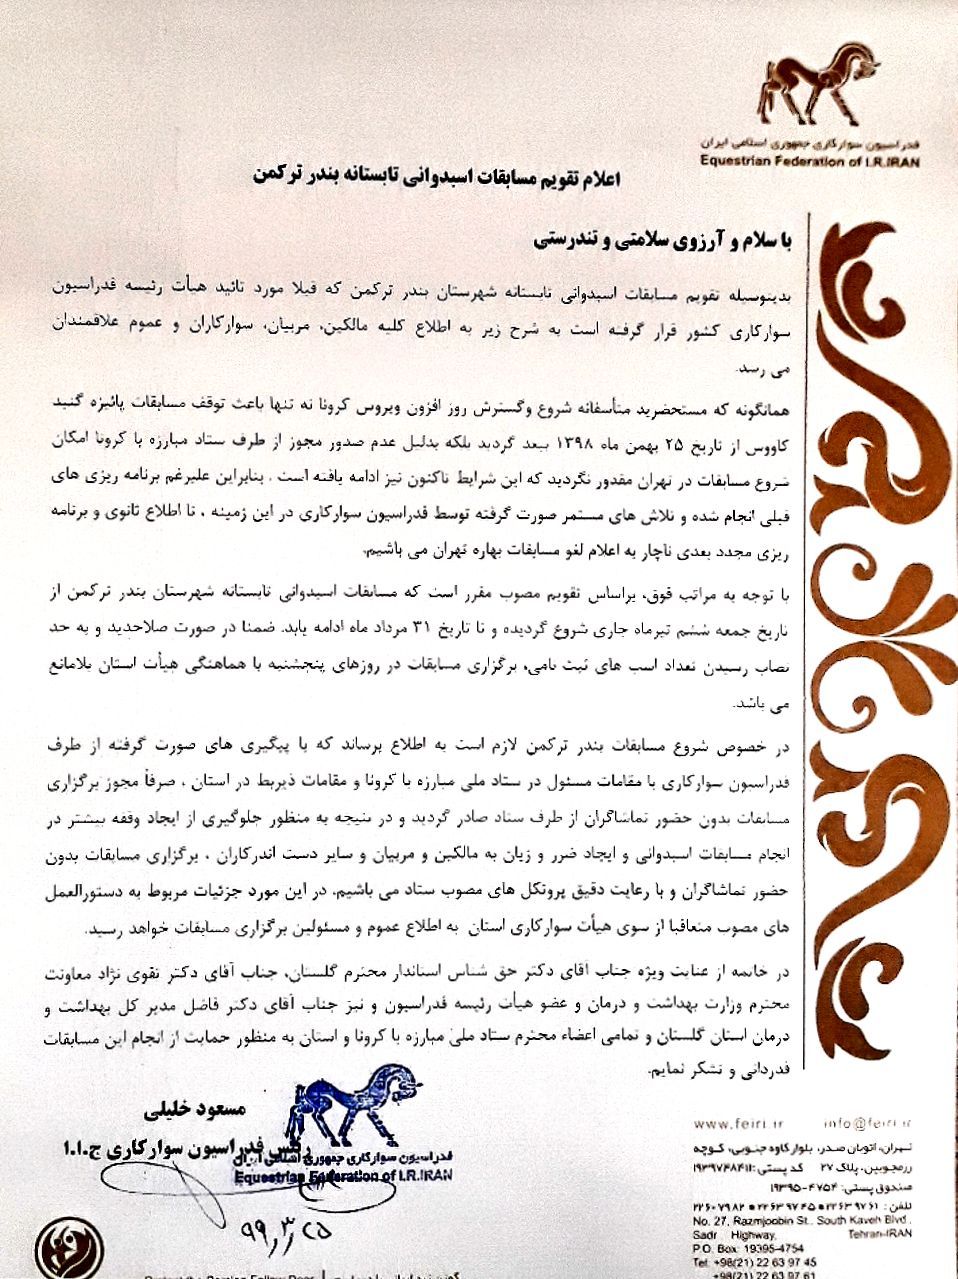 فدراسیون سوارکاری جمهوری اسلامی ایران
Equestrian Federation of I.R.IRAN
اعلام تقویم مسابقات اسبدوانی تابستانه بندر ترکمن
با سلام و آرزوی سلامتی و تندرستی
بدینوسیله تقویم مسابقات اسبدوانی تابستانه شهرستان بندر ترکمن که قبلا مورد تائید هیأت رئیسه فدراسیون
سوارکاری کشور قرار گرفته است به شرح زیر به اطلاع کلیه مالکین، مربیان، سوارکاران و عموم علاقمندان
می رسد.
همانگونه که مستحضرید متأسفانه شروع وگسترش روز افزون ویروس کرونا نه تنها باعث توقف مسابقات پائیزه گنبد
کاووس از تاریخ ۲۵ بهمن ماه ۱۳۹۸ ببعد گردید بلکه بدلیل عدم صدور مجوز از طرف ستاد مبارزه با کرونا امکان
شروع مسابقات در تهران مقدور نگردید که این شرایط تاکنون نیز ادامه یافته است . بنابراین علیرغم برنامه ریزی های
قبلی انجام شده و تلاش های مستمر صورت گرفته توسط فدراسیون سوارکاری در این زمینه ، تا اطلاع ثانوی و برنامه
ریزی مجدد بعدی ناچار به اعلام لغو مسابقات بهاره تهران می باشیم.
با توجه به مراتب فوق، براساس تقویم مصوب مقرر است که مسابقات اسبدوانی تابستانه شهرستان بندر ترکمن از
تاریخ جمعه ششم تیرماه جاری شروع گردیده و تا تاریخ ۳۱ مرداد ماه ادامه یابد. ضمنا در صورت صلاحدید و به حد
نصاب رسیدن تعداد اسب های ثبت نامی، برگزاری مسابقات در روزهای پنجشنبه با هماهنگی هیأت استان بلامانع
می باشد.
در خصوص شروع مسابقات بندر ترکمن لازم است به اطلاع برساند که با پیگیری های صورت گرفته از طرف
فدراسیون سوارکاری با مقامات مسئول در ستاد ملی مبارزه با کرونا و مقامات ذیربط در استان ، صرفاً مجوز برگزاری
مسابقات بدون حضور تماشاگران از طرف ستاد صادر گردید و در نتیجه به منظور جلوگیری از ایجاد وقفه بیشتر در
انجام مسابقات اسبدوانی و ایجاد ضرر و زیان به مالکین و مربیان و سایر دست اندرکاران ، برگزاری مسابقات بدون
حضور تماشاگران و با رعایت دقیق پروتکل های مصوب ستاد می باشیم. در این مورد جزئیات مربوط به دستورالعمل
های مصوب متعاقبا از سوی هیأت سوارکاری استان به اطلاع عموم و مسئولین برگزاری مسابقات خواهد رسید.
در خاتمه از عنایت ویژه جناب آقای دکتر حق شناس استاندار محترم گلستان، جناب آقای دکتر تقوی نژاد معاونت
محترم وزارت بهداشت و درمان و عضو هیأت رئیسه فدراسیون و نیز جناب آقای دکتر فاضل مدیر کل بهداشت و
درمان استان گلستان و تمامی اعضاء محترم ستاد ملی مبارزه با کرونا و استان به منظور حمایت از انجام این مسابقات
قدردانی و تشکر نمایم.
مسعود خلیلی
رئیس فدراسیون سوارکاری ج.ا.ا
فدراسیون سوارکاری جمهوری اسلامی ایران
Equestrian Federation of I.R.IRAN
۹۹/۳/۲۵
www.feiri.ir info@feiri.ir
تهران، اتوبان صدر، بلوار کاوه جنوبی، کوچه
رزمجویین، پلاک ۲۷ کد پستی: ۱۹۳۹۷۴۸۴۱۱
صندوق پستی: ۴۷۵۴-۱۹۳۹۵
تلفن: ۲۲۶۳۹۷۶۱ ● ۲۲۶۳۹۷۴۵ ● ۲۲۶۰۷۹۸۲
No. 27, Razmjoobin St., South Kaveh Blvd.,
Sadr Highway, Tehran-IRAN
P.O. Box: 19395-4754
Tel: +98(21) 22 63 97 45
+98(21) 22 63 97 61